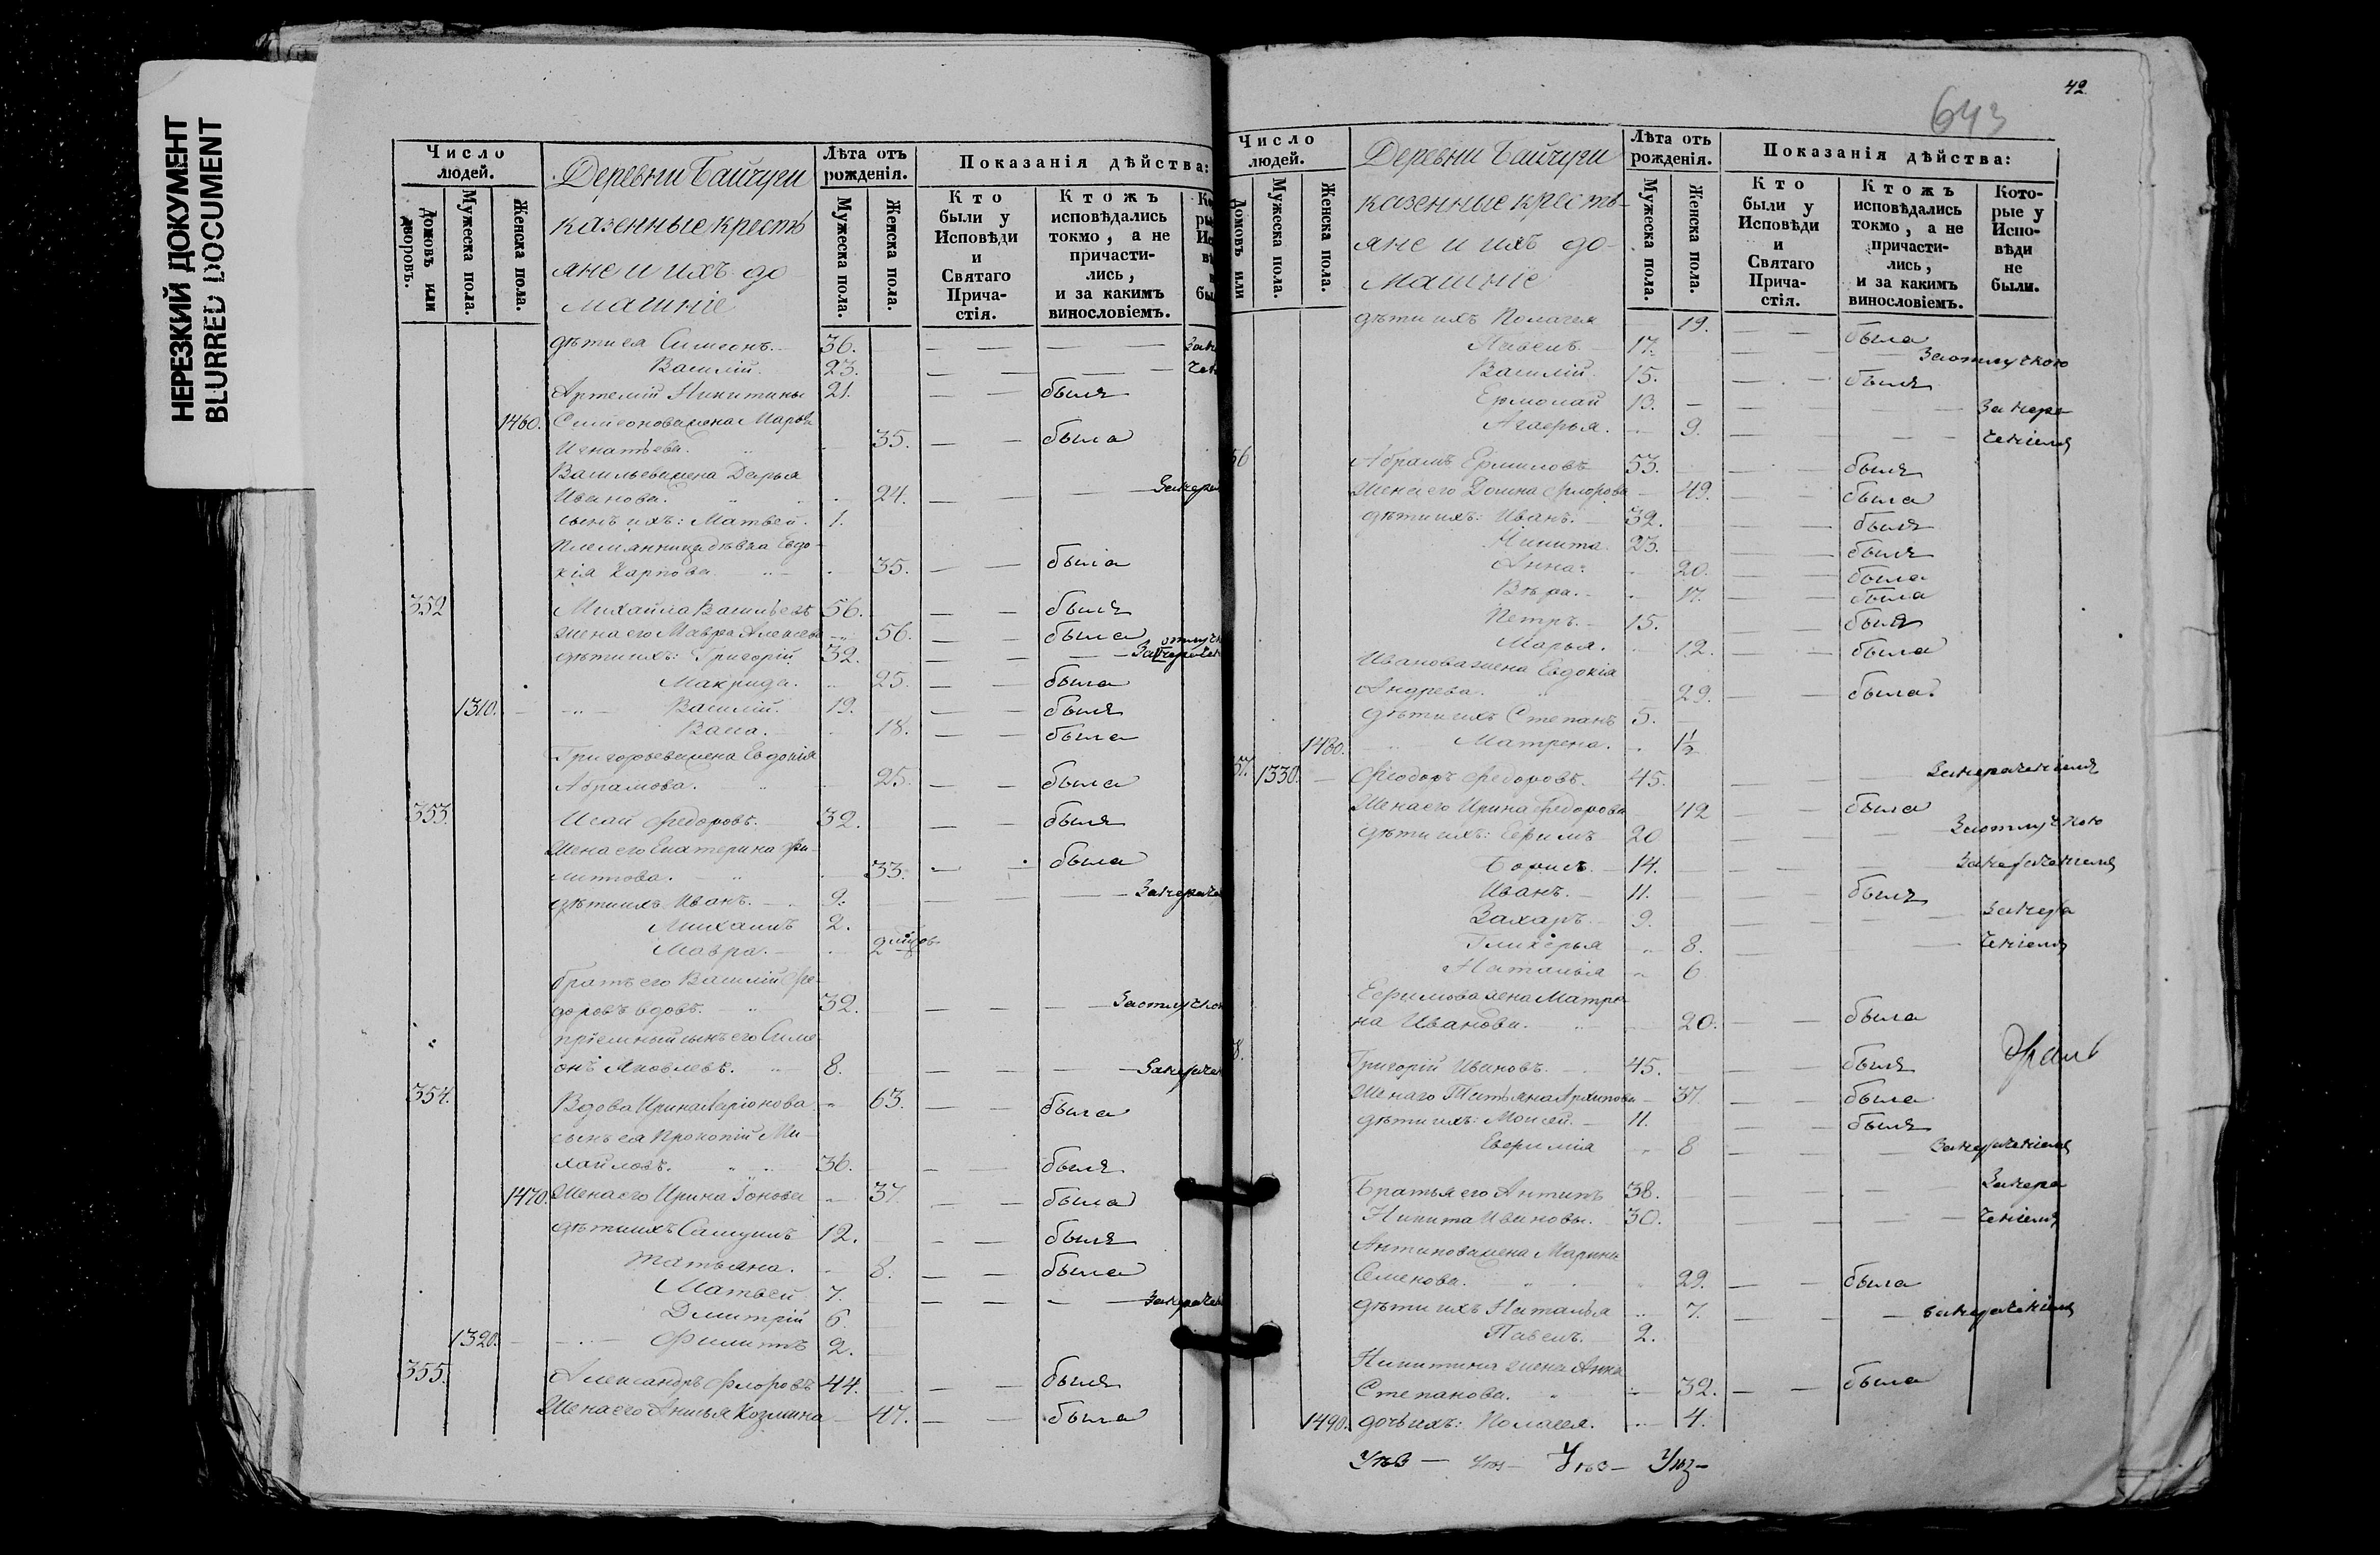 НЕРЕЗКИЙ ДОКУМЕНТ
BLURRED DOCUMENT
Число людей.
домовъ или дворовъ.
Мужеска пола.
Женска пола.
Деревни Байчуги
казенные кресть
яне и ихъ до
машніе
Лѣта отъ рожденія.
Мужеска пола.
Женска пола.
Показанія дѣйства:
Кто были у Исповѣди и Святаго Прича- стія.
Ктожъ исповѣдались токмо, а не причасти- лись, и за какимъ винословіемъ.
дѣти ея Симеонъ. 36.
Василій. 23.
Артемій Никитины 21. былъ
1460. Симеонова жена Марья
Игнатьева. 35. была
Васильева жена Дарья
Иванова. 24.
сынъ ихъ: Матвей. 1.
Племянница девка Евдо-
кія Карпова 35. была
352 Михайла Васильевъ 56. былъ
жена его Мавра Алексева 56. была
дѣти ихъ: Григорій 32.
Макрида. 25. была
1310. Василій. 19. былъ
Васа. 18. была
Григорьева жена Евдокія
Абрамова. 25. была
353. Исай Федоровъ. 32. былъ
жена его Екатерина Фи-
липова. 33. была
дѣти ихъ Иванъ. 9.
Михаилъ 2.
Мавра. 2
братъ его Василій Фе-
доровъ вдовъ. 32.
пріемный сынъ его Симе
онъ Яковлевъ. 8.
354. Вдова Ирина Ларіонова 63. была
сынъ ея Прокопій Ми-
хайловъ. 36. былъ
1470. Жена его Ирина 37. была
дѣти ихъ Самуилъ 12. былъ
Татьяна. 8. была
Матвей 7.
Дмитрій 6.
1320. Филиппъ 2.
355. Александръ Флоровъ 44. былъ
Жена его Анисья Козмина 47. была
42
643
Число людей.
Домовъ или
Мужеска пола.
Женска пола.
Деревни Байчуги
казенные кресть-
яне и ихъ до-
машніе
Лѣта отъ рожденія.
Мужеска пола.
Женска пола.
Показанія дѣйства:
Кто были у Исповѣди и Святаго Прича- стія.
Ктожъ исповѣдались токмо, а не причасти- лись, и за какимъ винословіемъ.
Кото- рые у Испо- вѣди не были.
дѣти ихъ Полагея 19. была
Павелъ 17. За отлучкою
Василій 15. былъ
Ермолай 13. За нера
Агаѳья. 9. ченіемъ
56 Абрамъ Ермиловъ 53. былъ
Жена его Домна Флорова 49. была
дѣти ихъ: Иванъ. 32. былъ
Никита 23. былъ
Анна 20. была
Вѣра. 17. была
Петръ. 15. былъ
Марья. 12. была
Иванова жена Евдокія
Андрева. 29. была
дѣти ихъ Степанъ 5.
1480. Матрена. 1½
57. 1330. Ѳіодоръ Федоровъ. 45. За нераченіемъ
Жена его Ирина Федорова 42 была
дѣти ихъ: Ефимъ 20 За отлучкою
Борисъ 14. За нераченіемъ
Иванъ. 11. былъ
Захаръ 9. За нера
Гликерья 8. ченіемъ
Наталья 6
Ефимова жена Матре
на Иванова. 20. была
8. Григорій Ивановъ. 45. былъ
Жена его Татьяна Архипова 37. была
дѣти ихъ: Моисей. 11. былъ
Евфимія 8 За нераченіемъ
Братья его Антипъ 38. За нера
Никита Ивановы. 30. ченіемъ
Антипова жена Марина
Семенова. 29. была
дѣти ихъ Наталья 7. за нераченіемъ
Павелъ. 2.
Никитина жена Анна
Степанова. 32. была
1490. дочь ихъ: Полагея. 4.